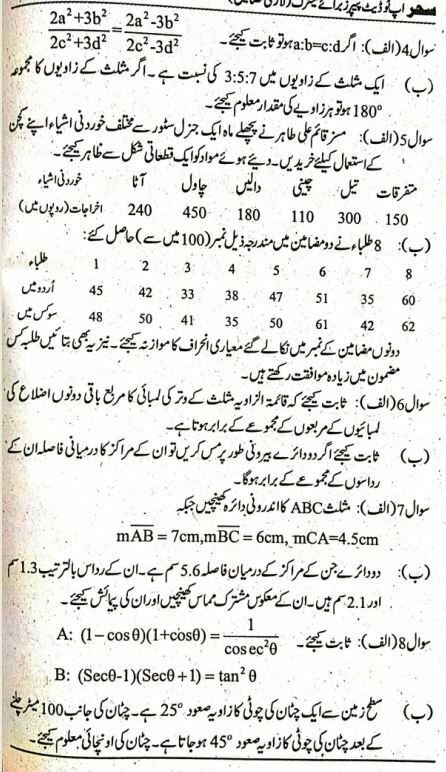 سحر اپ ٹو ڈیٹ پیپرز برائے
سوال 4 (الف): اگر a:b=c:d ہو تو ثابت کیجئے۔ (2a²+3b²)/(2c²+3d²) = (2a²-3b²)/(2c²-3d²)
(ب) ایک مثلث کے زاویوں میں 3:5:7 کی نسبت ہے۔ اگر مثلث کے زاویوں کا مجموعہ
180° ہو تو ہر زاویے کی مقدار معلوم کیجئے۔
سوال 5 (الف): مسز قائم علی طاہر نے پچھلے ماہ ایک جنرل سٹور سے مختلف خوردنی اشیاء اپنے کچن
کے استعمال کیلئے خریدیں۔ دیے ہوئے مواد کو ایک قطعاتی شکل سے ظاہر کیجئے۔
خوردنی اشیاء آٹا چاول دالیں چینی تیل متفرقات
اخراجات (روپوں میں) 240 450 180 110 300 150
(ب): 8 طلباء نے دو مضامین میں مندرجہ ذیل نمبر (100 میں سے) حاصل کئے:
طلباء 1 2 3 4 5 6 7 8
اُردو میں 45 42 33 38 47 51 35 60
سوکس میں 48 50 41 35 50 61 42 62
دونوں مضامین کے نمبر میں نکالے گئے معیاری انحراف کا موازنہ کیجئے۔ نیز یہ بھی بتائیں طلبہ کس
مضمون میں زیادہ موافقت رکھتے ہیں۔
سوال 6 (الف): ثابت کیجئے کہ قائمۃ الزاویہ مثلث کے وتر کی لمبائی کا مربع باقی دونوں اضلاع کی
لمبائیوں کے مربعوں کے مجموعے کے برابر ہوتا ہے۔
(ب) ثابت کیجئے اگر دو دائرے بیرونی طور پر مس کریں تو ان کے مراکز کا درمیانی فاصلہ ان کے
رداسوں کے مجموعے کے برابر ہوگا۔
سوال 7 (الف): مثلث ABC کا اندرونی دائرہ کھینچیں جبکہ
mA̅B̅ = 7cm, mB̅C̅ = 6cm, mCA=4.5cm
(ب): دو دائرے جن کے مراکز کے درمیان فاصلہ 5.6 سم ہے۔ ان کے رداس بالترتیب 1.3 سم
اور 2.1 سم ہیں۔ ان کے معکوس مشترک مماس کھینچیں اور ان کی پیمائش کیجئے۔
سوال 8 (الف): ثابت کیجئے۔ A: (1-cosθ)(1+cosθ) = 1/cosec²θ
B: (Secθ-1)(Secθ+1) = tan²θ
(ب) سطح زمین سے ایک چٹان کی چوٹی کا زاویہ صعود 25° ہے۔ چٹان کی جانب 100 میٹر چلنے
کے بعد چٹان کی چوٹی کا زاویہ صعود 45° ہو جاتا ہے۔ چٹان کی اونچائی معلوم کیجئے۔